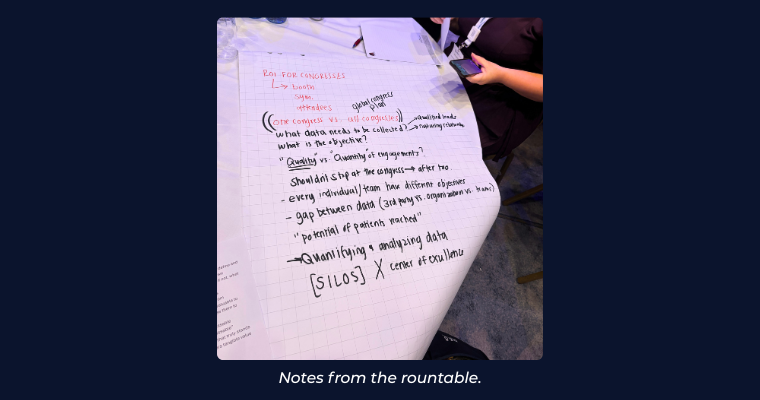 ROI FOR CONGRESSES
↳ booth
symp.
attendees
global congress
plan
((one congress vs. all congresses))
what data needs to be collected? → qualified leads
→ nurturing relationships
what is the objective?
"Quality" vs. "Quantity" of engagements?
Shouldn't stop at the congress → after too
- every individual/team have different objectives
- gap between data (3rd party vs. organization vs. teams)
"potential of patients reached"
→ Quantifying & analyzing data
[SILOS] X center of excellence
Notes from the rountable.